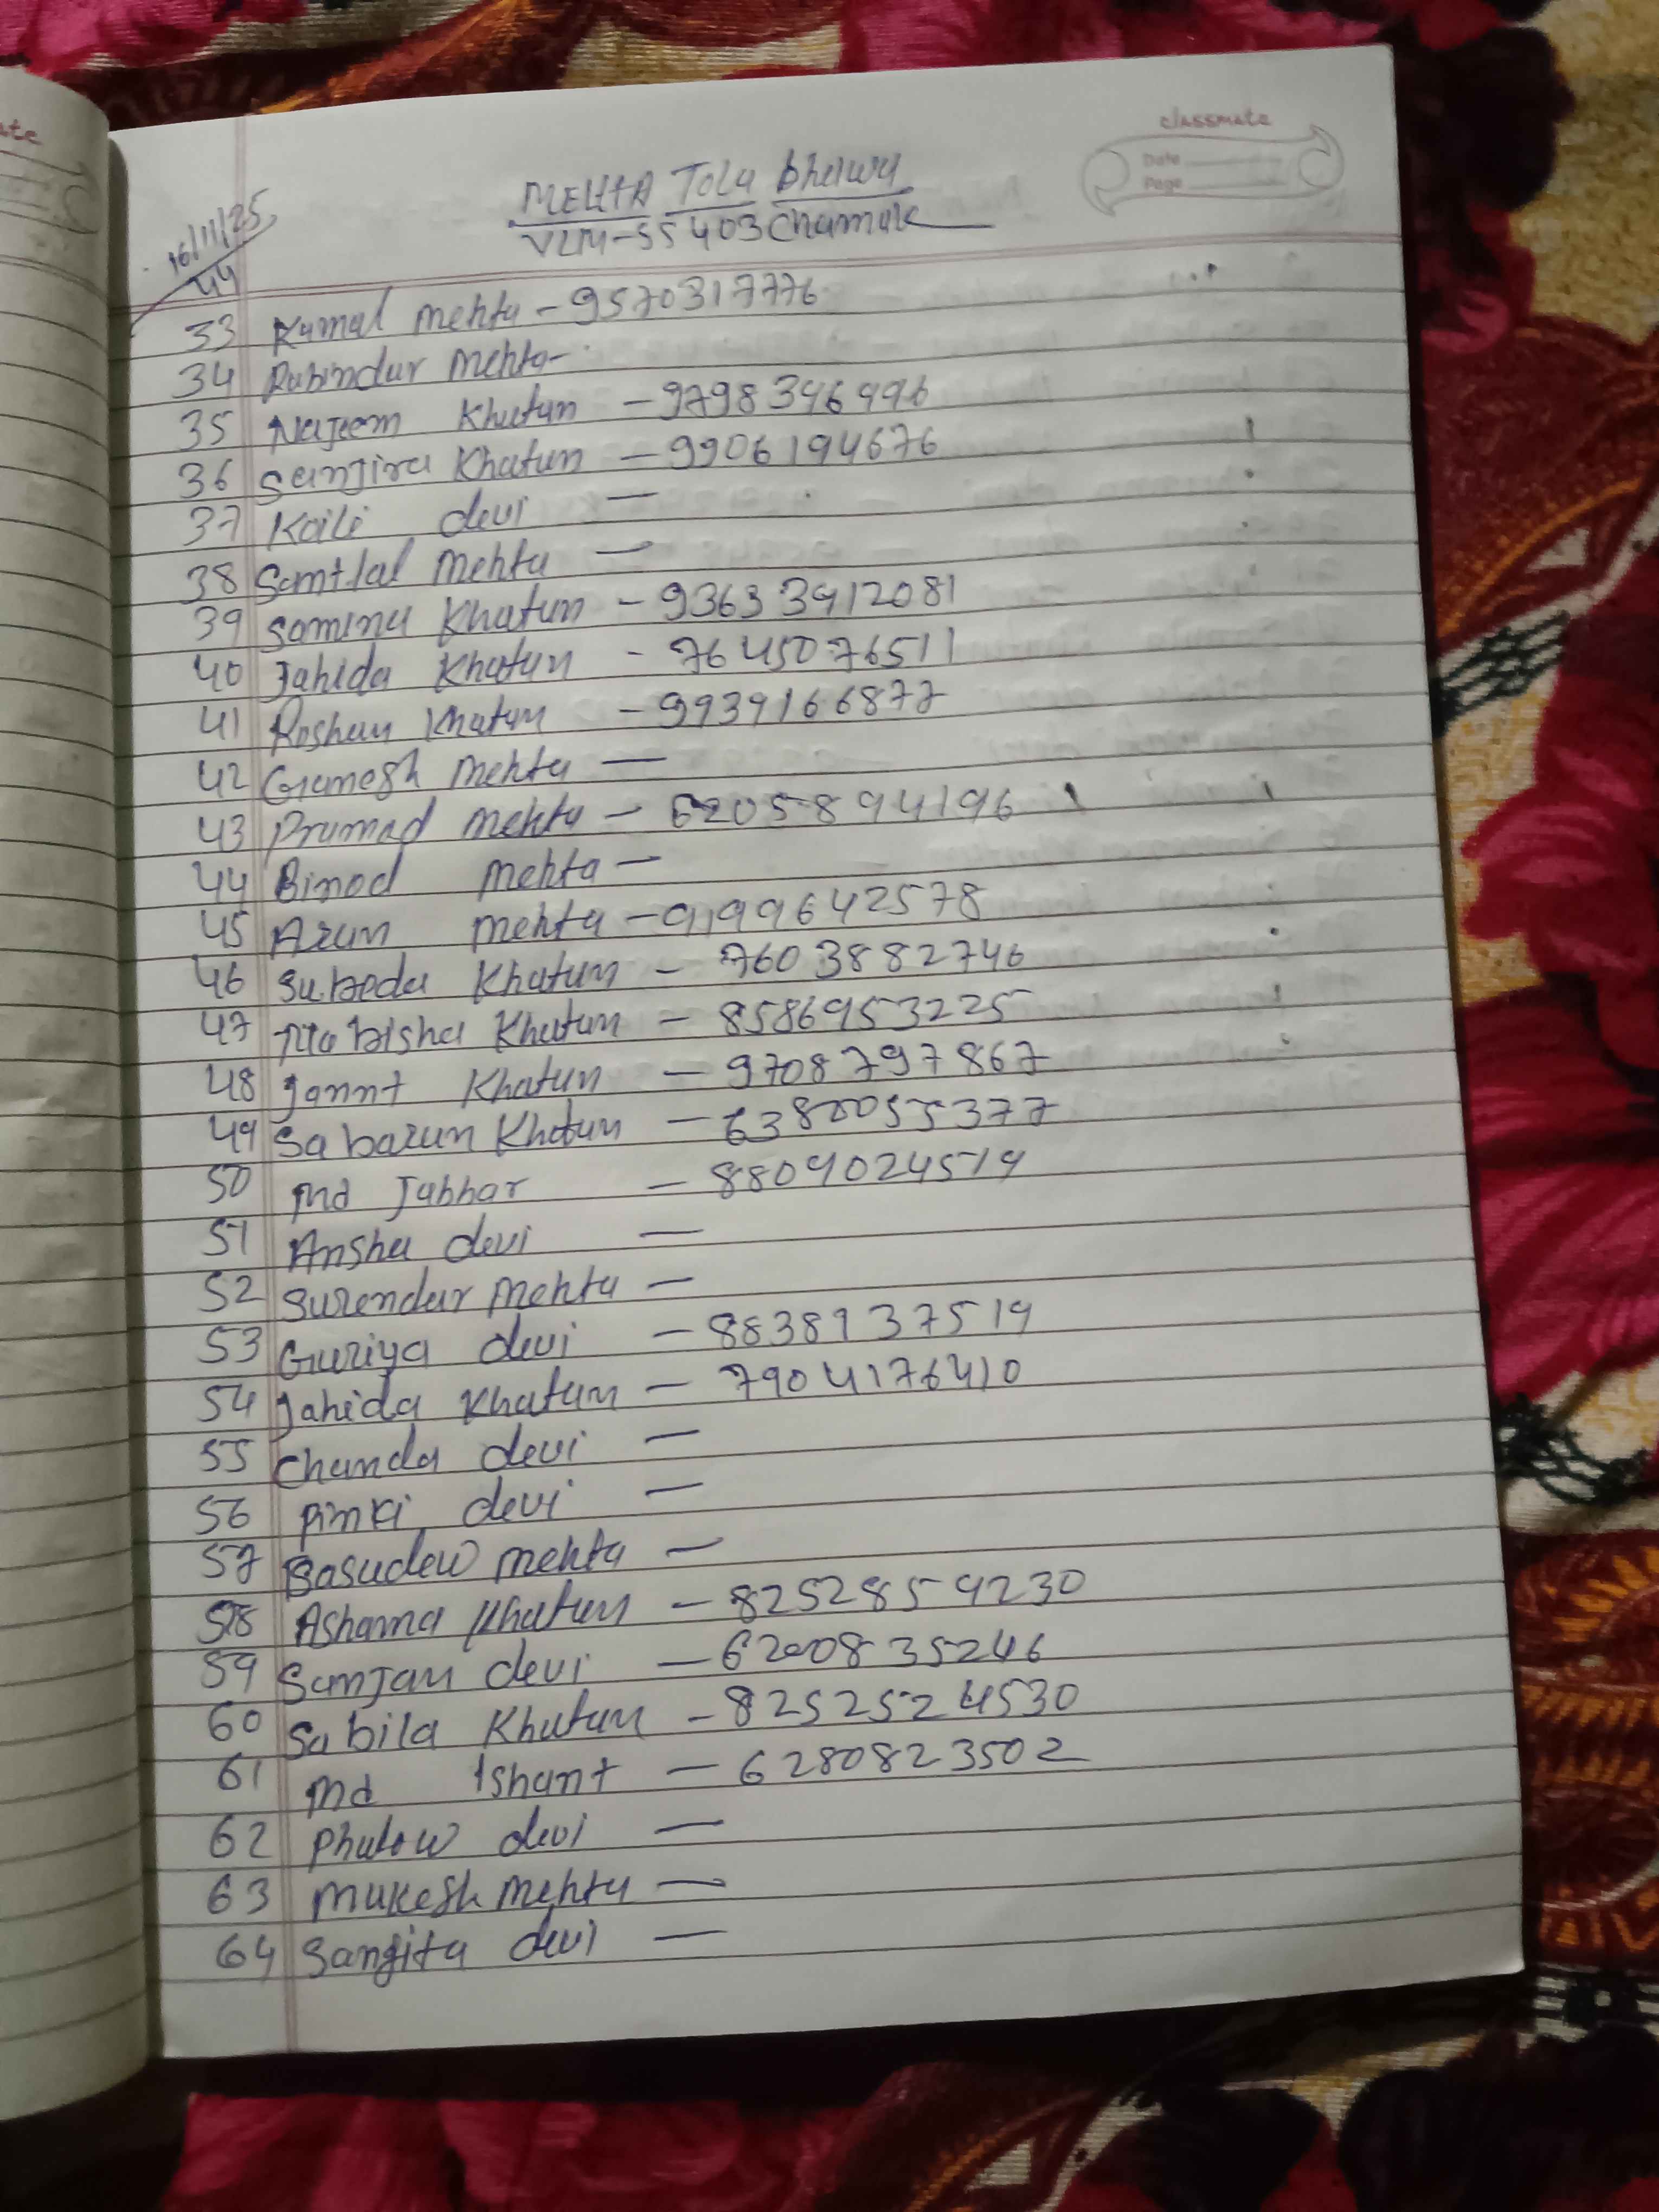 classmate
Date
Page
16/11/25
44
MEHTA Tola Bhawa
VLM-55403 Chamak
33 Kamal Mehta - 9570317776
34 Rabindar Mehta-
35 Najeem Khatun - 9798346996
36 Sanjira Khatun - 9906194676
37 Kaili devi —
38 Samtlal Mehta —
39 Samina Khatun - 93633912081
40 Jahida Khatun - 7645076511
41 Roshan Khatun - 9939166877
42 Ganesh Mehta —
43 Pramad Mehta - 6205894196
44 Binod Mehta —
45 Arun Mehta - 9199642578
46 Subeda Khatun - 7603882746
47 Khatun - 8586953225
48 Jannt Khatun - 9708797867
49 Sabarun Khatun - 6380055377
50 Md Jabbar - 8809024519
51 Ansha devi —
52 Surendar Mehta —
53 Guriya devi - 8838937519
54 Jahida Khatun - 7904176410
55 Chanda devi —
56 Pinki devi —
57 Basudew Mehta —
58 Ashama Khatun - 8252859230
59 Sanjan devi - 6200835246
60 Sabila Khatun - 8252524530
61 Md Ishant - 6280823502
62 Phulow devi —
63 Mukesh Mehta —
64 Sangita devi —